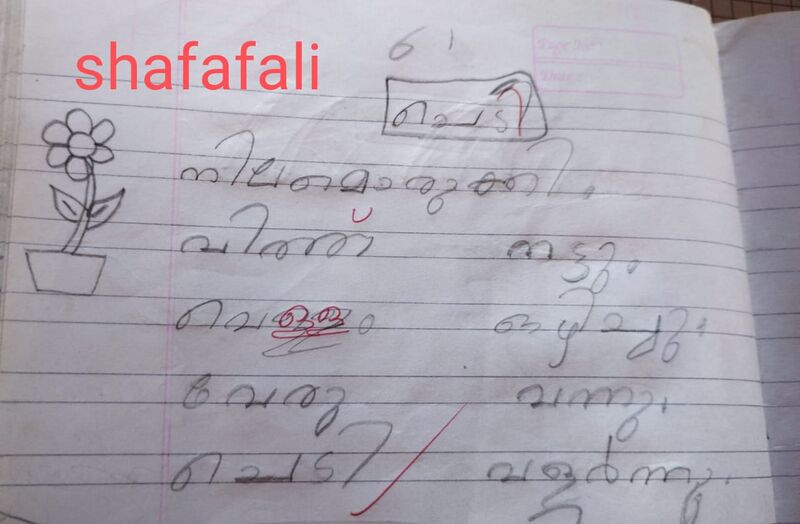 shafafali
6 1
Page No:
Date:
ചെടി
നിലമൊരുക്കി.
വിത്ത് നട്ടു.
വെള്ളം ഒഴിച്ചു.
വേരു വന്നു.
ചെടി വളർന്നു.